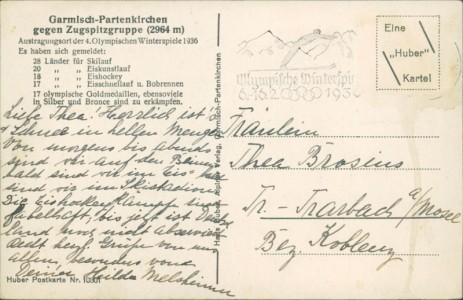 Garmisch-Partenkirchen
gegen Zugspitzgruppe (2964 m)
Austragungsort der 4. Olympischen Winterspiele 1936
Es haben sich gemeldet:
28 Länder für Skilauf
20 „ „ Eiskunstlauf
18 „ „ Eishockey
17 „ „ Eisschnellauf u. Bobrennen
17 olympische Goldmedaillen, ebensoviele
in Silber und Bronce sind zu erkämpfen.
Liebe Thea! Herrlich ist es
Schnee in hellen Mengen
Von morgens bis abends
sind wir auf den Beinen
bald sind wir im Eis
sind wir im Skistadion
Die Eishockeykämpfe sind
fabelhaft, bis jetzt ist Deutsch
land noch nicht
herzl. Grüße von uns
allen, besonders von
Deiner Hilde
Huber Postkarte Nr. 10301
Verlag, Garmisch-Partenkirchen
Olympische Winterspiele
6.-16.2. 1936
Eine
„Huber"
Karte!
Fräulein
Thea Brosius
Tr.-Trarbach a/Mosel
Bez. Koblenz